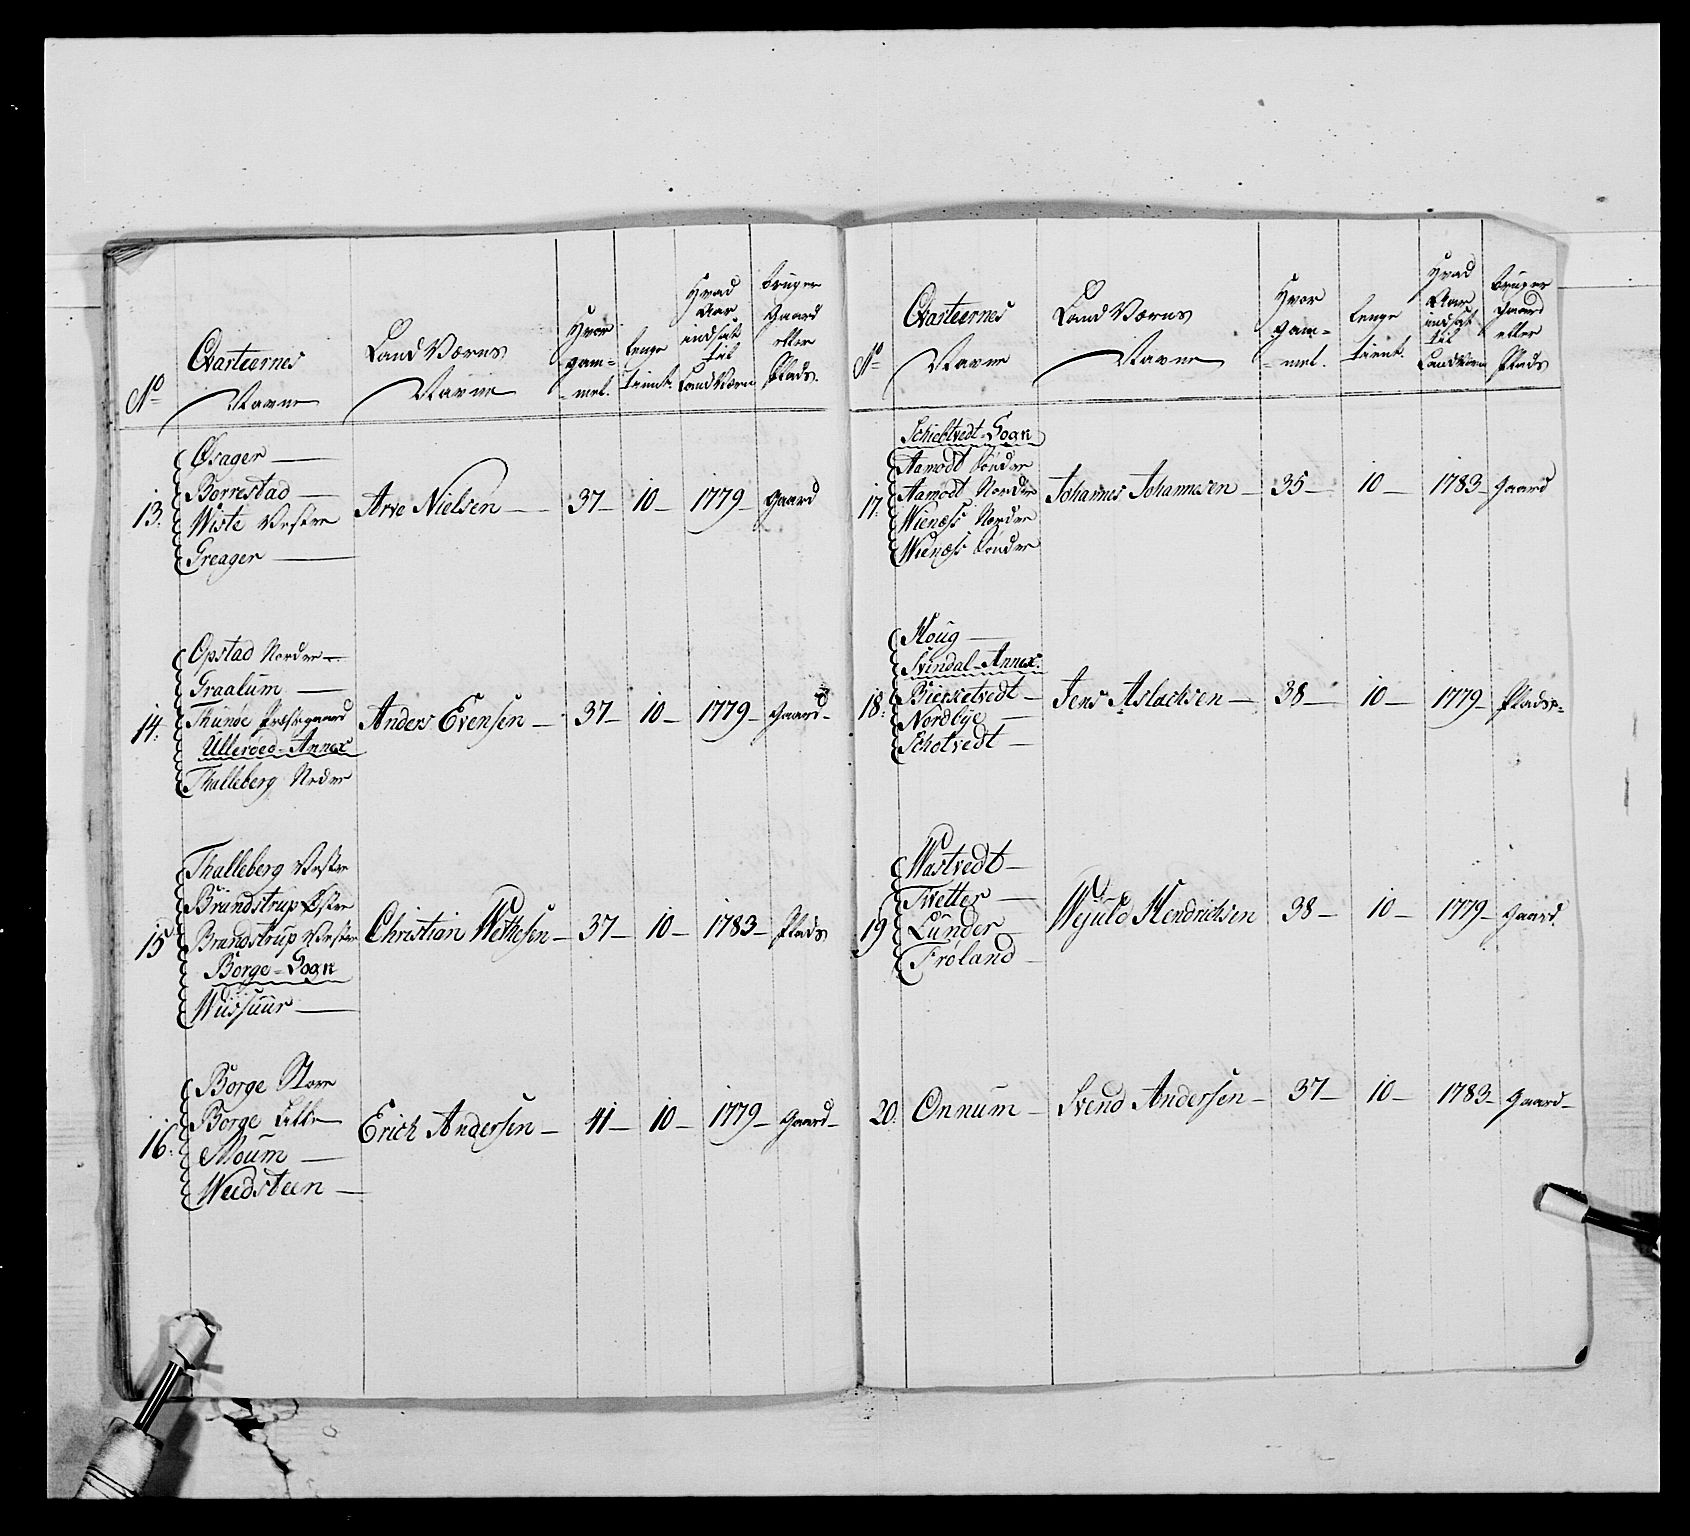 No
Qvarteernes
Navne
Land Værns
Navne
Hvor
gam=
mel.
lenge
tient.
Hvad
Aar
indsat
til
LandVærn
bruger
Gaard
eller
Plads.
13.
Øsager
Borrestad
Wiste Vestre
Greager
Arve Nielsen 37 10 1779 Gaard
14.
Opstad Nordre
Graalum
Thunøe Præstegaard
Ullerøed-Annex
Thalleberg Nedre
Anders Evensen 37 10 1779 Gaard
15
Thalleberg Vestre
Brundstrup Østre
Brundstrup Vestre
Borge-Sogn
Christian Wethesen 37 10 1783 Plads
16.
Borge Store
Borge Lille
Moum
Weedsteen
Erich Andersen 41 10 1779 Gaard
No
Qvarteernes
Navne
Land Værns
Navne
Hvor
gam=
mel.
lenge
tient.
Hvad
Aar
indsat
til
Landværn
bruger
Gaard
eller
Plads
17.
Schieltvedt-Sogn
Aamodt Søndre
Aamodt Nordre
Wienæss Nordre
Wienæss Søndre
Johannes Johannesen 35 10 1783 Gaard
18.
Houg
Svindal-Annex.
Bierketvedt
Nordbye
Schotvedt
Jens Aslachsen 38 10 1779 Plads
19
Wastvedt
Tvetter
Lunder
Frøland
Wejuld Hendrichsen 38 10 1779 Gaard.
20. Onnum Svend Andersen 37 10 1783 Gaard